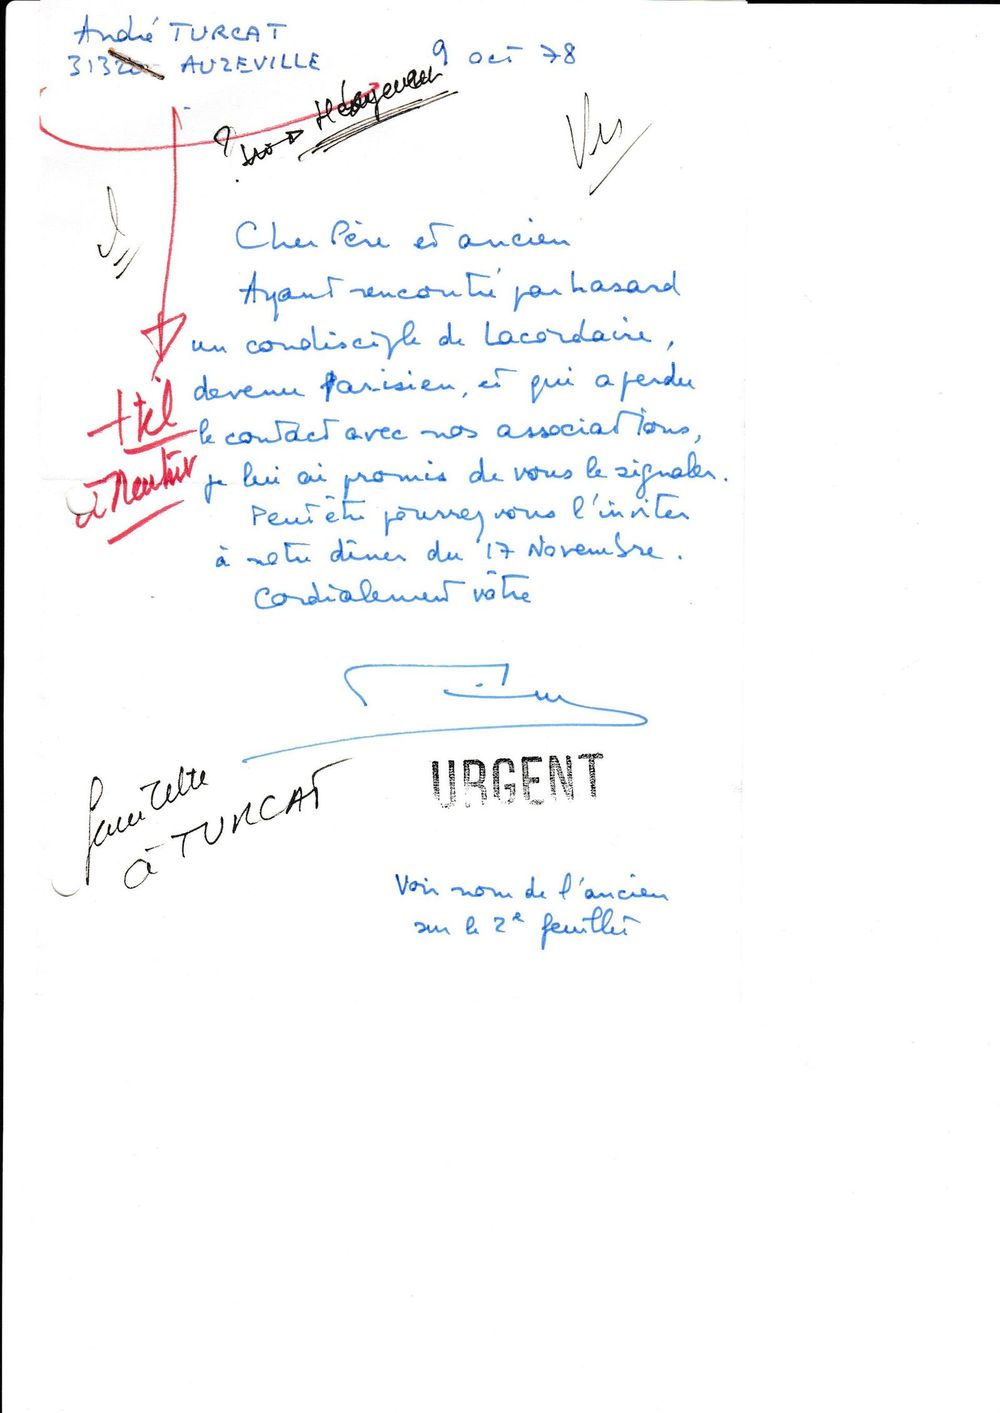 André TURCAT
31320 AUZEVILLE
9 oct 78
?
Vu
Cher Père et ancien
Ayant rencontré par hasard
un condisciple de Lacordaire,
devenu Parisien, et qui a perdu
le contact avec nos associations,
je lui ai promis de vous le signaler.
Peut être pourrez vous l'inviter
à notre dîner du 17 Novembre.
Cordialement vôtre
+ tél
à
URGENT
à TURCAT
Voir nom de l'ancien
sur le 2e feuillet